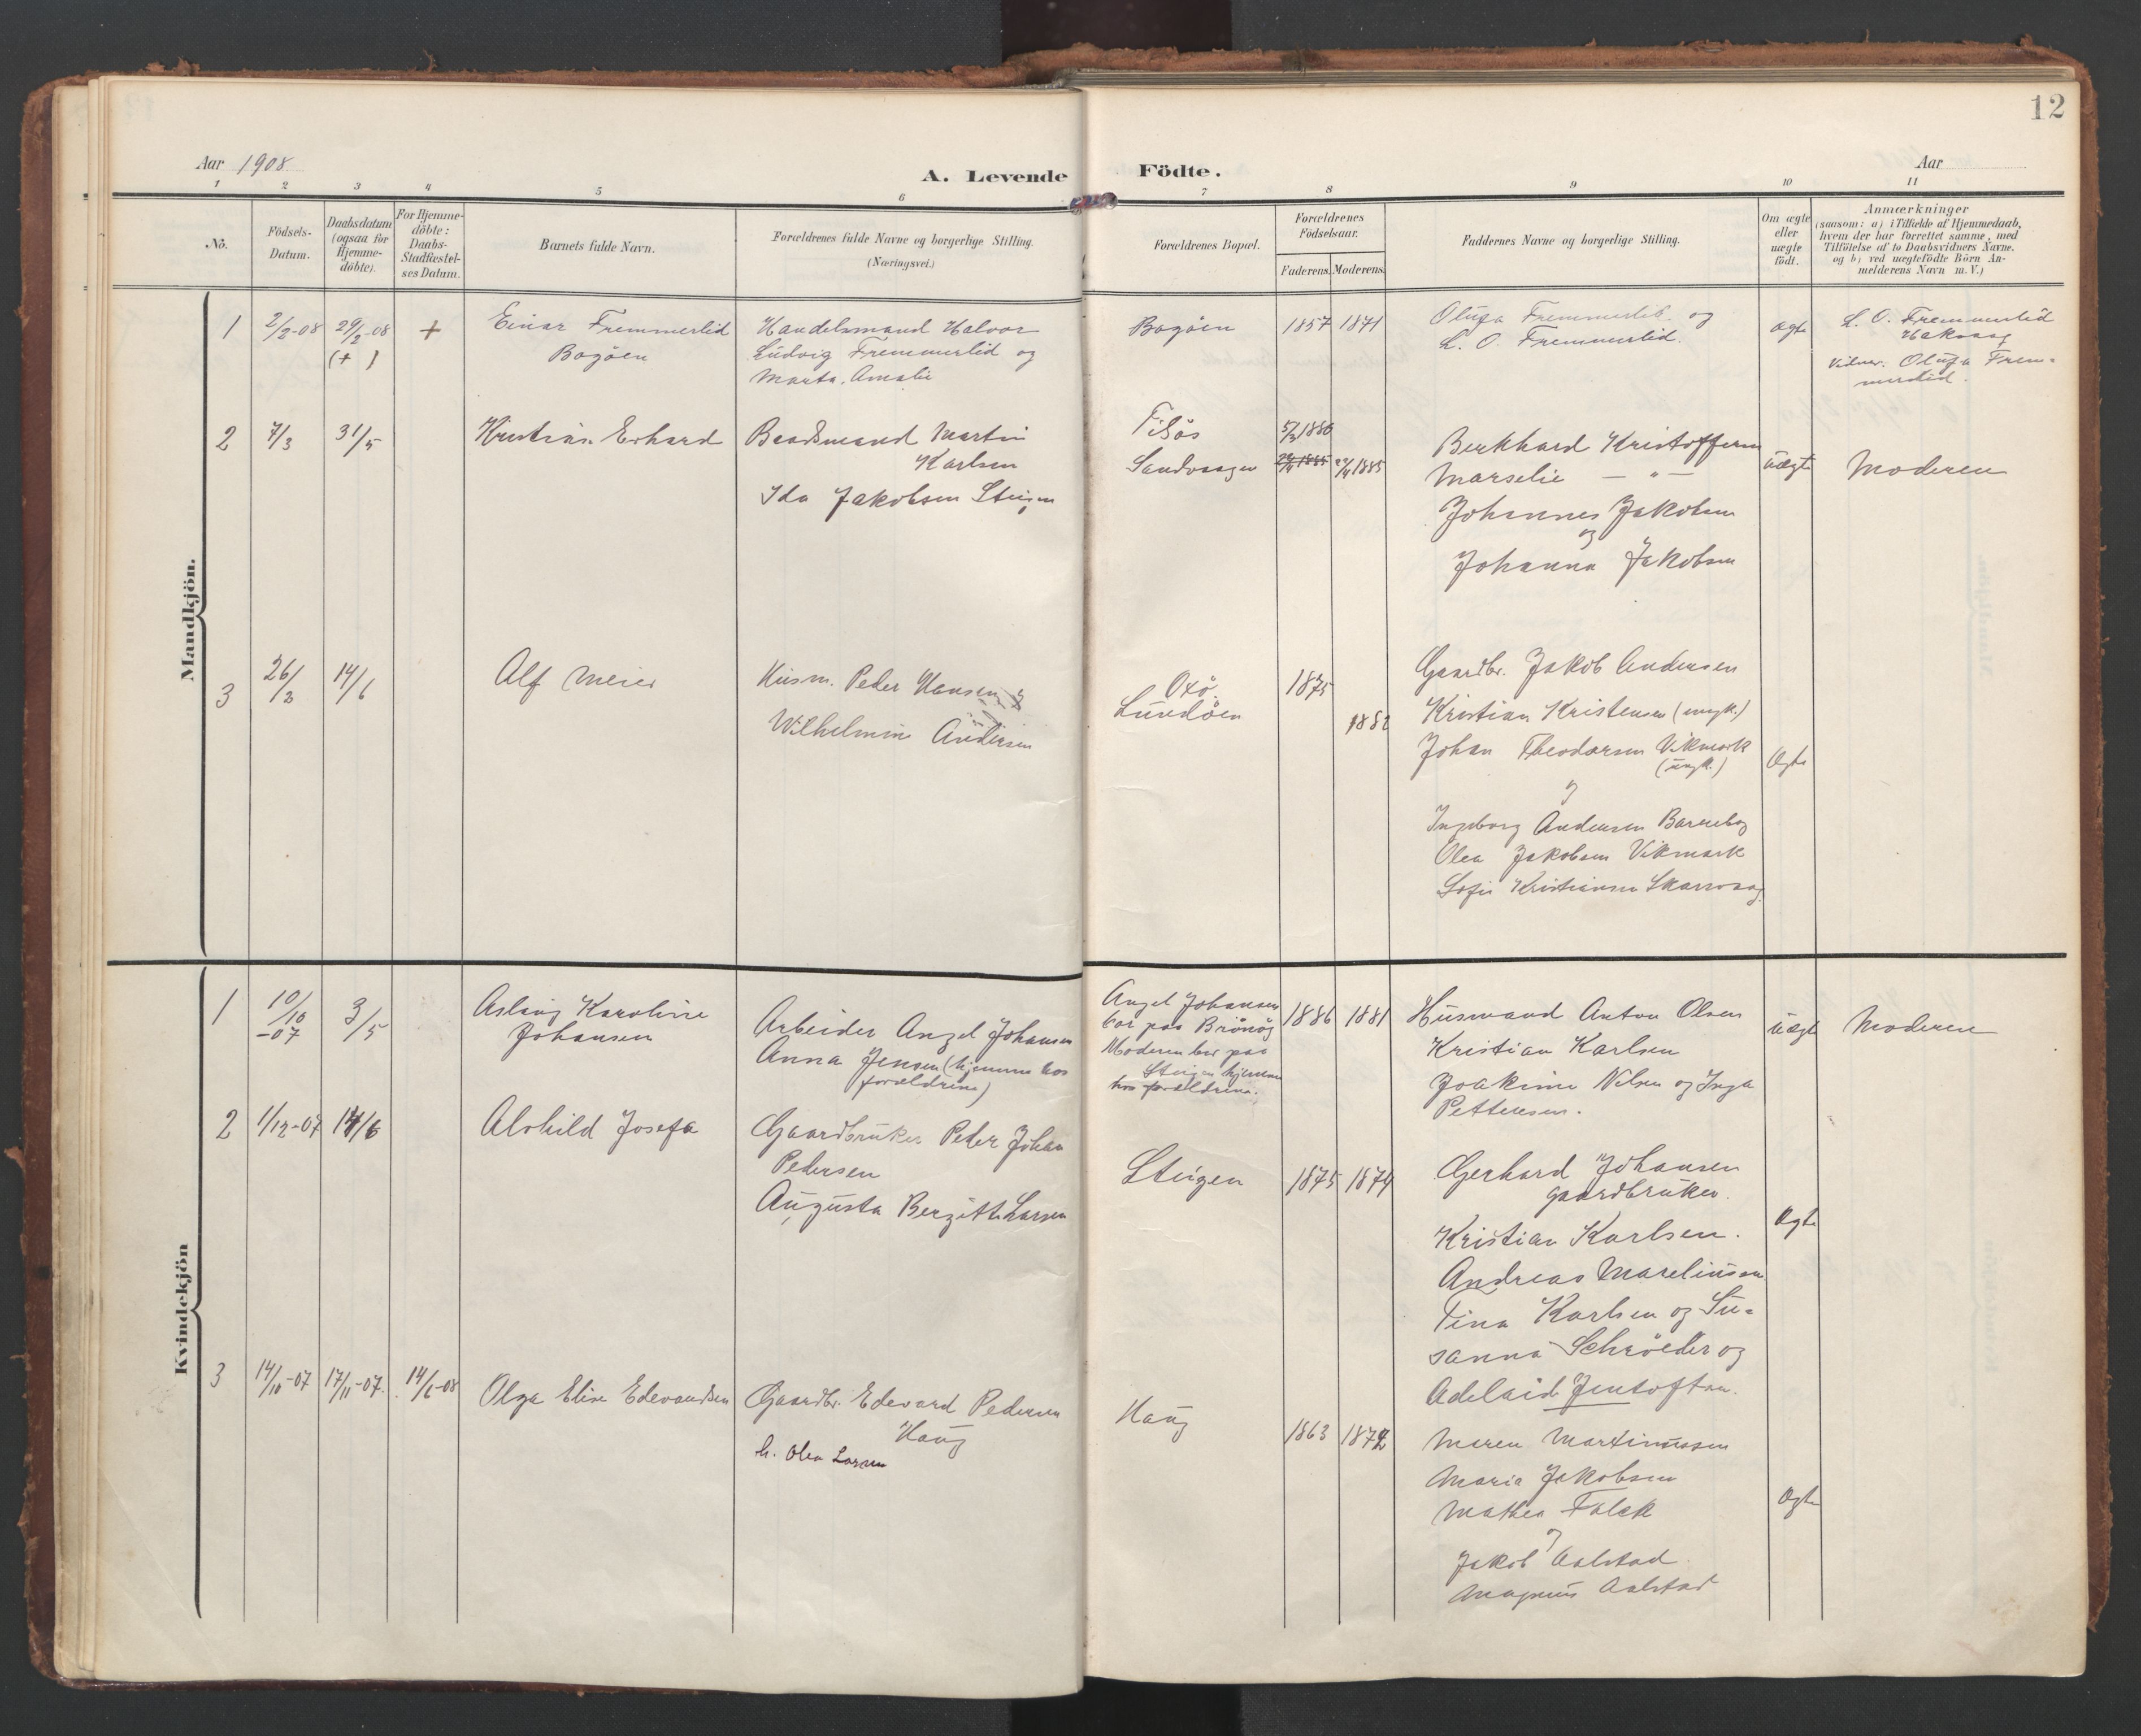 12
Aar 1908
A. Levende Födte.
Aar
1 2 3 4 5 6 7 8 9 10 11
No.
Födsels-
Datum.
Daabsdatum
(ogsaa for
Hjemme-
döbte).
For Hjemme-
döbte:
Daabs-
Stadfæstel-
ses Datum.
Barnets fulde Navn.
Forældrenes fulde Navne og borgerlige Stilling.
(Næringsvei.)
Forældrenes Bopæl.
Forældrenes
Födselsaar.
Faderens. Moderens.
Faddernes Navne og borgerlige Stilling.
Om ægte
eller
uægte
födt.
Anmærkninger
(saasom: a) i Tilfælde af Hjemmedaab,
hvem der har forrettet samme, med
Tilföielse af to Daabsvidners Navne.
og b) ved uægtefödte Börn An-
melderens Navn m. V.)
Mandkjön.
1
2/2-08
29/2-08
(+ )
+
Einar Fremmerlid
Bogöen
Handelsmand Halvor
Ludvig Fremmerlid og
Marta. Amalie
Bogöen
1857
1871
Olufa Fremmerlid og
L. O. Fremmerlid.
ægte
L. O. Fremmerlid
Vidner. Olufa Frem-
merlid.
2
7/3
31/5
Kristian Erhard
Baadsmand Martin
Karlsen
Ida Jakobsen Steigen
Sandvaagen
5/3 1886
22/4 1885
Berkhard Kristoffersen
Marselie — " —
Johannes Jakobsen
og
Johanna Jakobsen
uægte
Moderen
3
26/3
14/6
Alf Meier
Husm. Peder Hansen og
Wilhelmine Andersen
Oxö.
Lundöen
1875
1882
Gaardbr. Jakob Andersen
Kristian Kristensen (ungk.)
Johan Theodorsen Vikmark
(ungk.)
og
Ingeborg Andersen
Olea Jakobsen Vikmark
Sofie Kristiansen Skarvaag
Ægte
Kvindekjön
1
10/10
-07
3/5
Aslaug Karoline
Johansen
Arbeider Angel Johansen
Anna Jensen (hjemme hos
forældrene)
Angel Johansen
bor paa Brönög
Moderen bor paa
Steigen hjemme
hos forældrene.
1886
1881
Husmand Anton Olsen
Kristian Karlsen
Joakime Nilsen og Inga
Pettersen.
uægte
Moderen
2
1/12-07
14/6
Alvhild Josefa
Gaardbruker Peder Johan
Pedersen
Augusta Bergitte Larsen
Steigen
1875
1874
Gerhard Johansen
gaardbruker.
Kristian Karlsen.
Andreas Mareliussen
Tina Karlsen og Su-
sanna Schröeder og
Adelaide Jentoftsen.
Ægte
3
14/10-07
17/11-07.
14/6-08
Olga Elise Edevardsen
Gaardbr. Edevard Pedersen
Haug
h. Olea Larsen
Haug
1863
1872
Maren Martinussen
Maria Jakobsen
Mathea Falck
og
Jakob Aalstad
Magnus Aalstad
Ægte